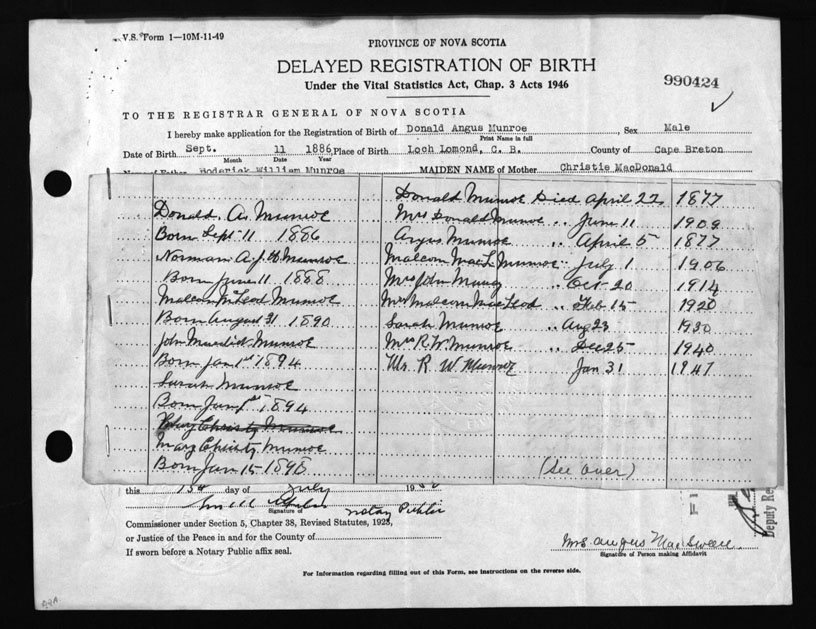 V.S. Form 1—10M-11-49
PROVINCE OF NOVA SCOTIA
DELAYED REGISTRATION OF BIRTH
Under the Vital Statistics Act, Chap. 3 Acts 1946
990424
TO THE REGISTRAR GENERAL OF NOVA SCOTIA
I hereby make application for the Registration of Birth of Donald Angus Munroe, Sex Male
Print Name in full
Date of Birth Sept. 11 1886, Place of Birth Loch Lomond, C. B. County of Cape Breton
Month Date Year
Name of Father Roderick William Munroe MAIDEN NAME of Mother Christie MacDonald
Donald. A. Munroe
Born Sept 11 1886
Norman A. J. Munroe
Born June 11 1888
Malcom McLeod Munroe
Born August 31 1890
John Murdid Munroe
Born Jan 1st 1894
Sarah Munroe
Born Jan 1st 1894
Christy Munroe
Mary Christy Munroe
Born Jan 15 1898
Donald Munroe Died April 22 1877
Mrs Donald Munroe " June 11 1909
Angus Munroe " April 5 1877
Malcom MacL Munroe " July 1 1906
Mrs John Munro " Oct 20 1914
Mrs Malcom MacLeod " Feb 15 1920
Sarah Munroe " Aug 23 1930
Mrs R. W. Munroe " Dec 25 1940
Mr. R. W. Munroe Jan 31 1947
(See over)
this 13th day of July 19
Signature of Notary Public
Commissioner under Section 5, Chapter 38, Revised Statutes, 1923,
or Justice of the Peace in and for the County of
If sworn before a Notary Public affix seal.
Deputy Re
Mrs. Angus MacSween
Signature of Person making Affidavit
For Information regarding filling out of this Form, see instructions on the reverse side.